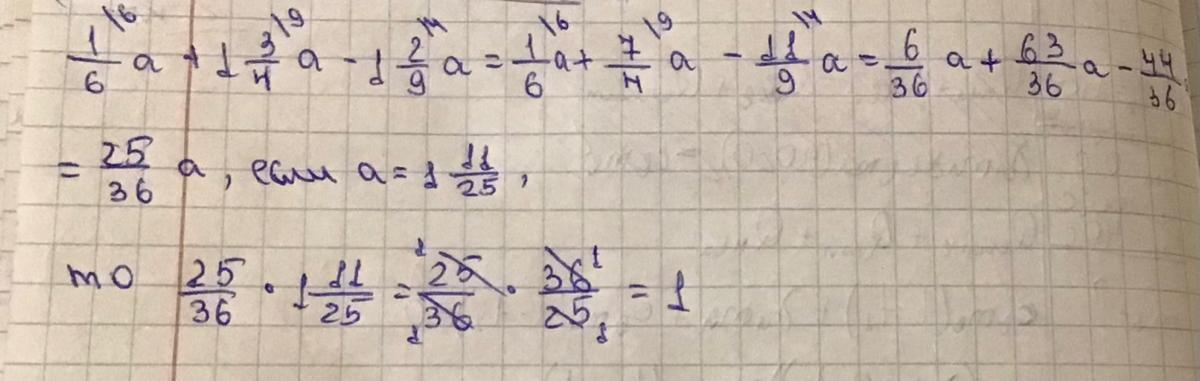 1/6\6 a + 1 3/4\9 a - 1 2/9\4 a = 1/6\6 a + 7/4\9 a - 11/9\4 a = 6/36 a + 63/36 a - 44/36
= 25/36 a, если a = 1 11/25,
то 25/36 · 1 11/25 = 25/36 · 36/25 = 1